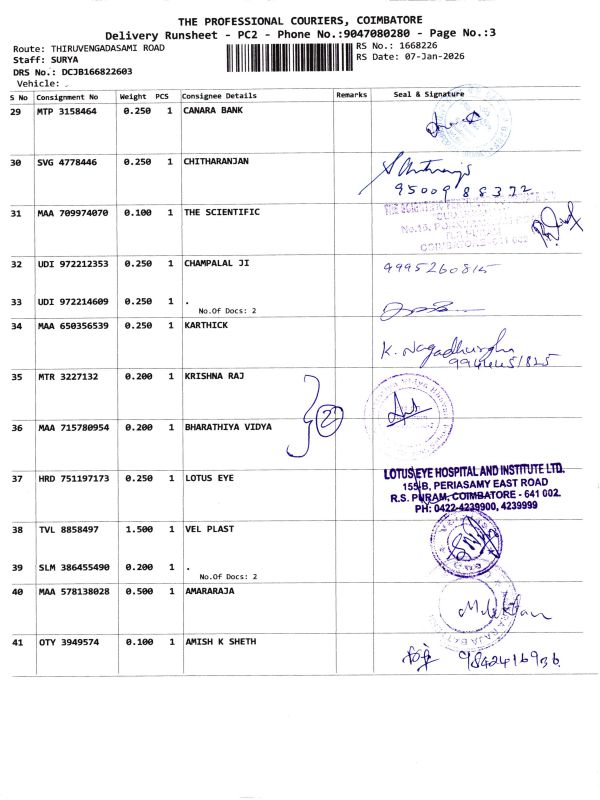 THE PROFESSIONAL COURIERS, COIMBATORE
Delivery Runsheet - PC2 - Phone No.:9047080280 - Page No.:3
Route: THIRUVENGADASAMI ROAD
RS No.: 1668226
Staff: SURYA
RS Date: 07-Jan-2026
DRS No.: DCJB166822603
Vehicle: .
S No Consignment No Weight PCS Consignee Details Remarks Seal & Signature
29 MTP 3158464 0.250 1 CANARA BANK
30 SVG 4778446 0.250 1 CHITHARANJAN
95009 88372
31 MAA 709974070 0.100 1 THE SCIENTIFIC
32 UDI 972212353 0.250 1 CHAMPALAL JI
9995260815
33 UDI 972214609 0.250 1 .
No.Of Docs: 2
34 MAA 650356539 0.250 1 KARTHICK
K. Nagadhurgha
9944451825
35 MTR 3227132 0.200 1 KRISHNA RAJ
2
36 MAA 715780954 0.200 1 BHARATHIYA VIDYA
37 HRD 751197173 0.250 1 LOTUS EYE
LOTUS EYE HOSPITAL AND INSTITUTE LTD.
155-B, PERIASAMY EAST ROAD
R.S. PURAM, COIMBATORE - 641 002.
PH: 0422-4239900, 4239999
38 TVL 8858497 1.500 1 VEL PLAST
39 SLM 386455490 0.200 1 .
No.Of Docs: 2
40 MAA 578138028 0.500 1 AMARARAJA
41 OTY 3949574 0.100 1 AMISH K SHETH
9842416936